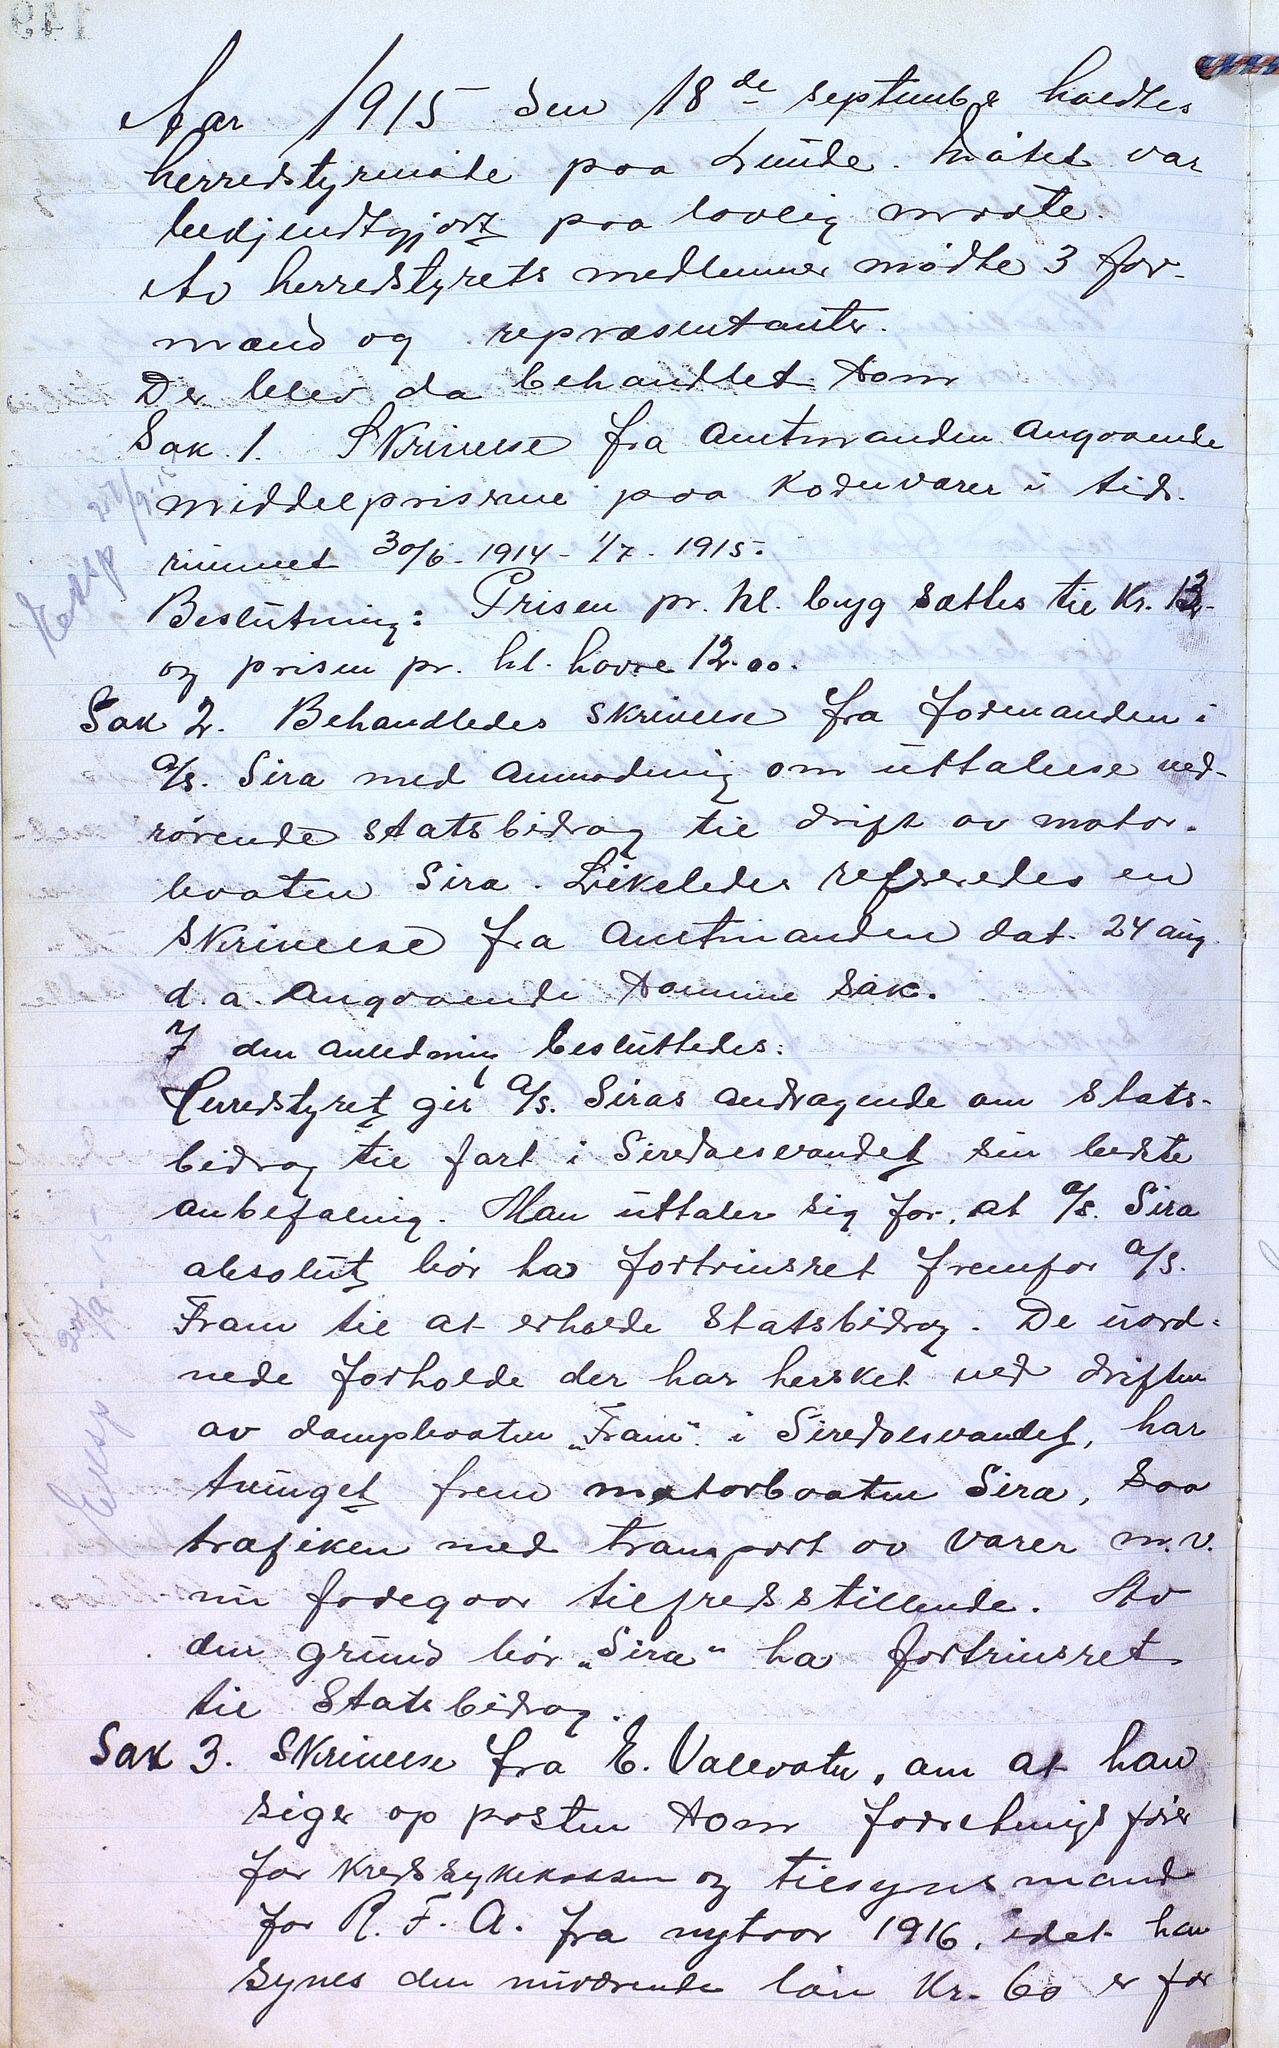 149
Aar 1915 den 18de septembr holdtes
herredstyrmøte paa Lunde. Møtet var
bekjendtgjort paa lovlig maate.
Av herredstyrets medlemmer mødte 3 for-
mænd og repræsentanter.
Der blev da behandlet som
Sak 1. Skrivelse fra amtmanden angaaende
middelpriserne paa kornvarer i tids-
rummet 30/6-1914-1/7-1915.
Beslutning: Prisen pr. hl. byg sættes til Kr. 13
og prisen pr. hl. havre 12.00.
Sak 2. Behandledes skrivelse fra formanden i
a/s. Sira med anmodning om uttalelse ved-
rørende statsbidrag til drift av motor-
baaten Sira. Likeledes refereredes en
skrivelse fra amtmanden dat. 24 aug.
d.a. angaaende samme sak.
I den anledning besluttedes:
Herredstyret gir a/s. Siras andragende om stats-
bidrag til fart i Siredalsvandet sin bedste
anbefaling. Man uttaler sig for, at a/s. Sira
absolut bør ha fortrinsret fremfor a/s.
Fram til at erholde statsbidrag. De uord-
nede forholde der har hersket ved driften
av dampbaaten „Fram" i Siredalsvandet, har
tvunget frem motorbaaten Sira, saa
trafiken med transport av varer m.v.
nu foregaar tilfredsstillende. Av
den grund bør „Sira" ha fortrinsret
til Statsbidrag.
Sak 3. Skrivelse fra E. Vallevatn, om at han
siger op posten som forretningsfører
for kredssykekassen og tilsynsmand
for R.F.A. fra nytaar 1916, idet han
synes den nuværende løn Kr. 60 er for
Exsp
Exsp. 20/9-15